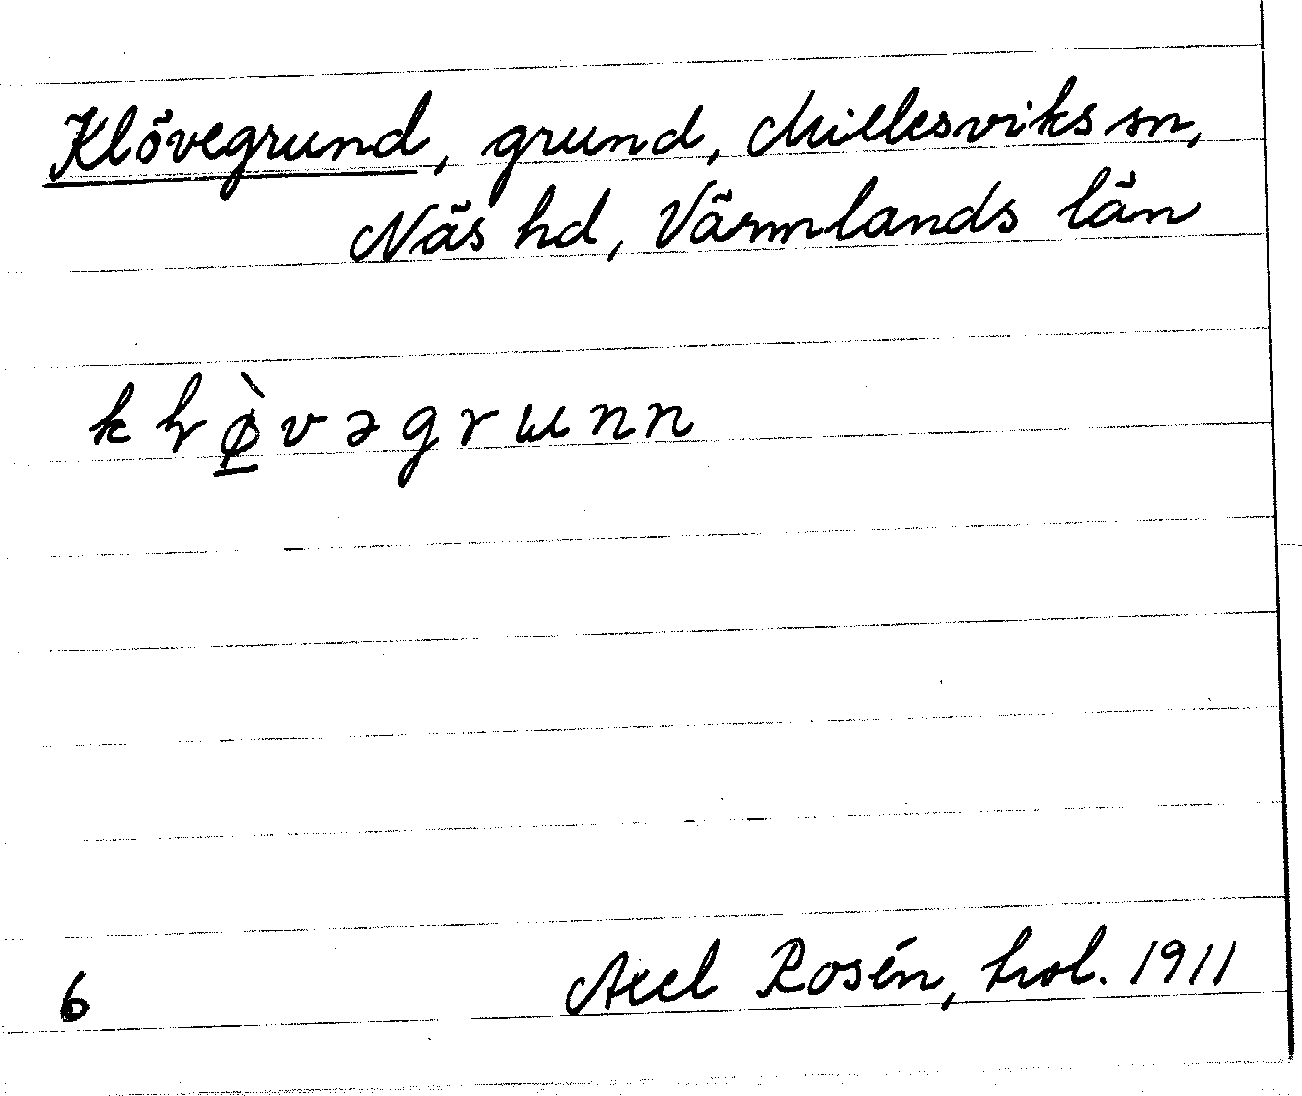 Klövegrund, grund, Millesviks sn,
Näs hd, Värmlands län
kɽø̱̀vəgrɯnn
6 Axel Rosén, hol. 1911